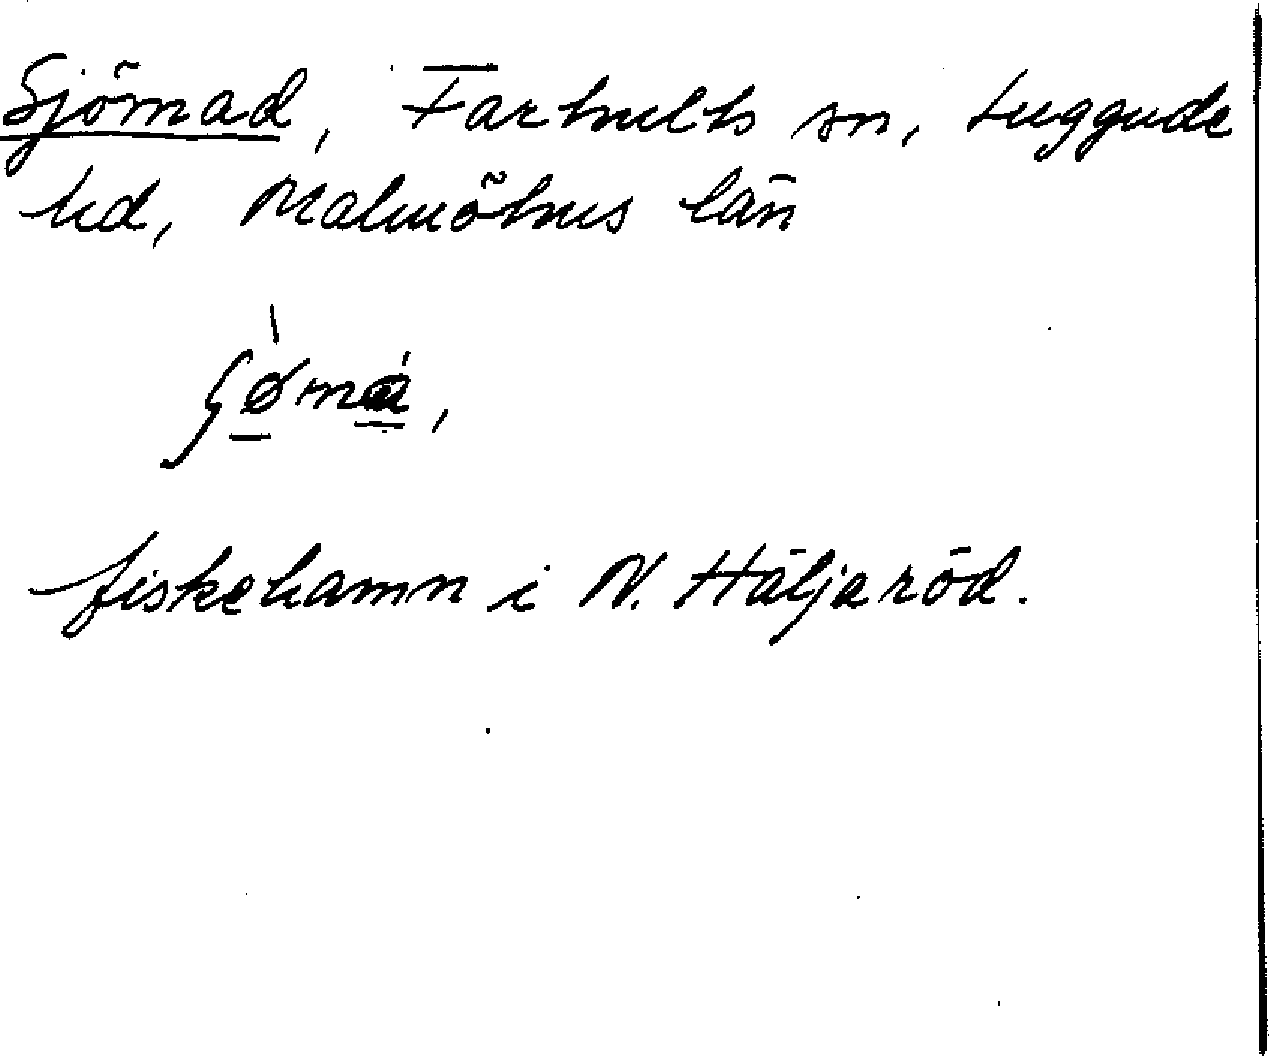 Sjömad, Farhults sn, Luggude
hd, Malmöhus län
fiskehamn i N. Häljaröd.